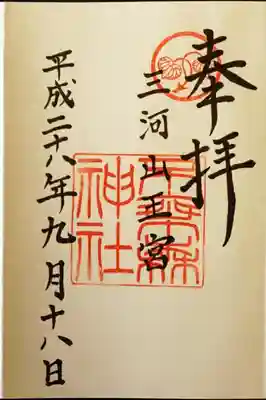 奉拝
三河山王宮
神社
平成二十八年九月十八日